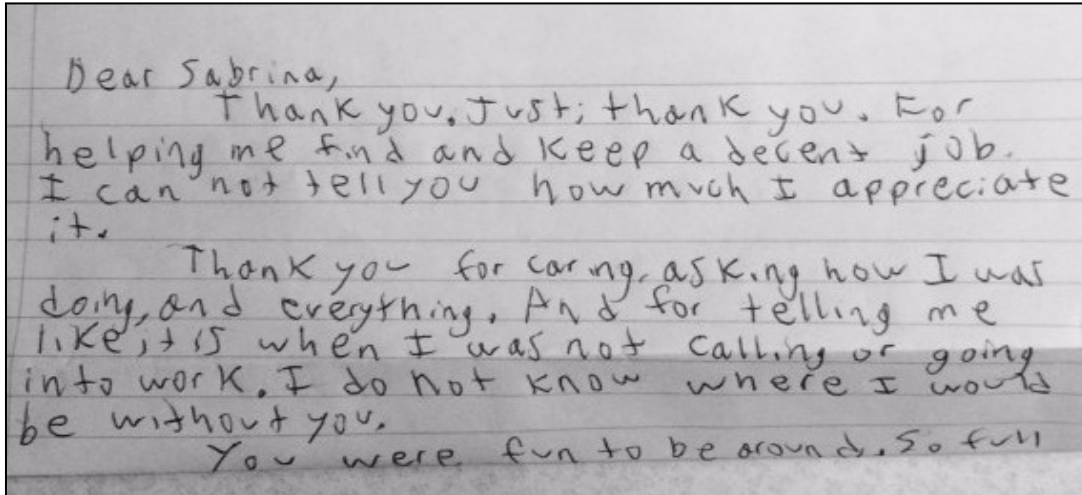 Dear Sabrina,
Thank you. Just; thank you. For
helping me find and keep a decent job.
I can not tell you how much I appreciate
it.
Thank you for caring, asking how I was
doing, and everything. And for telling me
like it is when I was not calling or going
into work. I do not know where I would
be without you.
You were fun to be around. So full